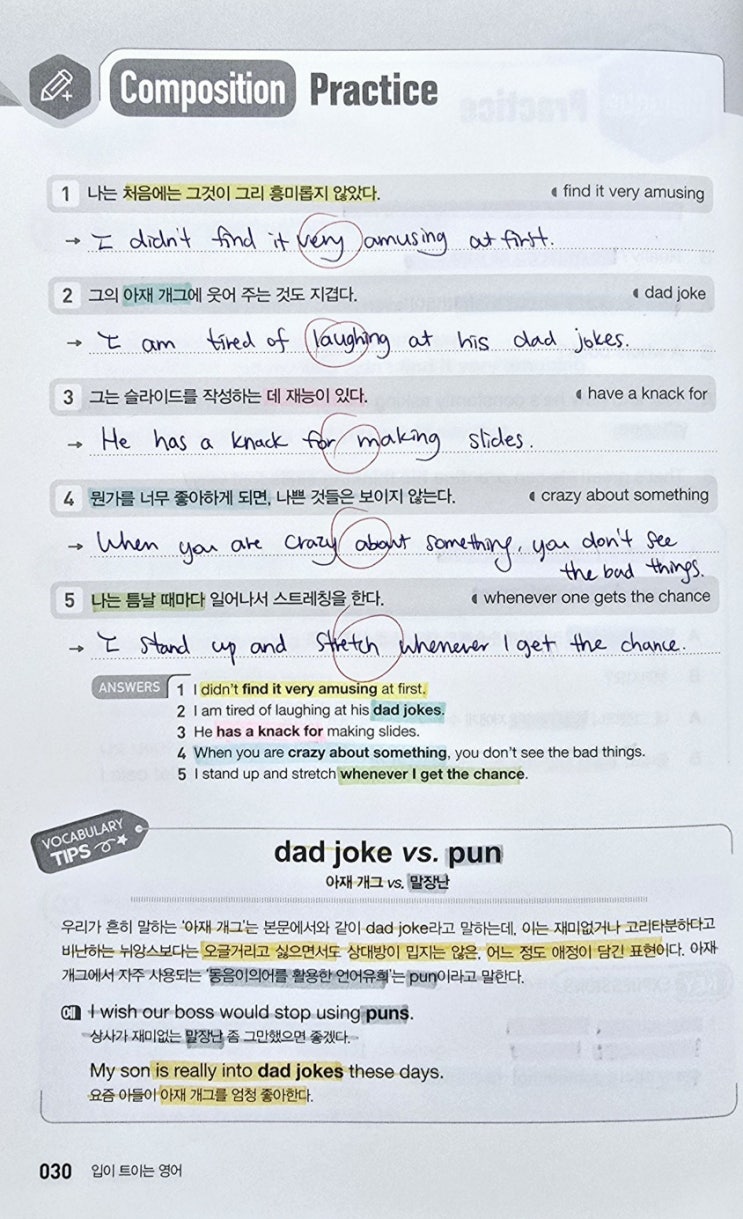 Composition Practice
1 나는 처음에는 그것이 그리 흥미롭지 않았다. find it very amusing
→ I didn't find it very amusing at first.
2 그의 아재 개그에 웃어 주는 것도 지겹다. dad joke
→ I am tired of laughing at his dad jokes.
3 그는 슬라이드를 작성하는 데 재능이 있다. have a knack for
→ He has a knack for making slides.
4 뭔가를 너무 좋아하게 되면, 나쁜 것들은 보이지 않는다. crazy about something
→ When you are crazy about something, you don't see
the bad things.
5 나는 틈날 때마다 일어나서 스트레칭을 한다. whenever one gets the chance
→ I stand up and stretch whenever I get the chance.
ANSWERS 1 I didn't find it very amusing at first.
2 I am tired of laughing at his dad jokes.
3 He has a knack for making slides.
4 When you are crazy about something, you don't see the bad things.
5 I stand up and stretch whenever I get the chance.
VOCABULARY
TIPS
dad joke vs. pun
아재 개그 vs. 말장난
우리가 흔히 말하는 '아재 개그'는 본문에서와 같이 dad joke라고 말하는데, 이는 재미없거나 고리타분하다고
비난하는 뉘앙스보다는 오글거리고 싫으면서도 상대방이 밉지는 않은, 어느 정도 애정이 담긴 표현이다. 아재
개그에서 자주 사용되는 '동음이의어를 활용한 언어유희'는 pun이라고 말한다.
예 I wish our boss would stop using puns.
상사가 재미없는 말장난 좀 그만했으면 좋겠다.
My son is really into dad jokes these days.
요즘 아들이 아재 개그를 엄청 좋아한다.
030 입이 트이는 영어